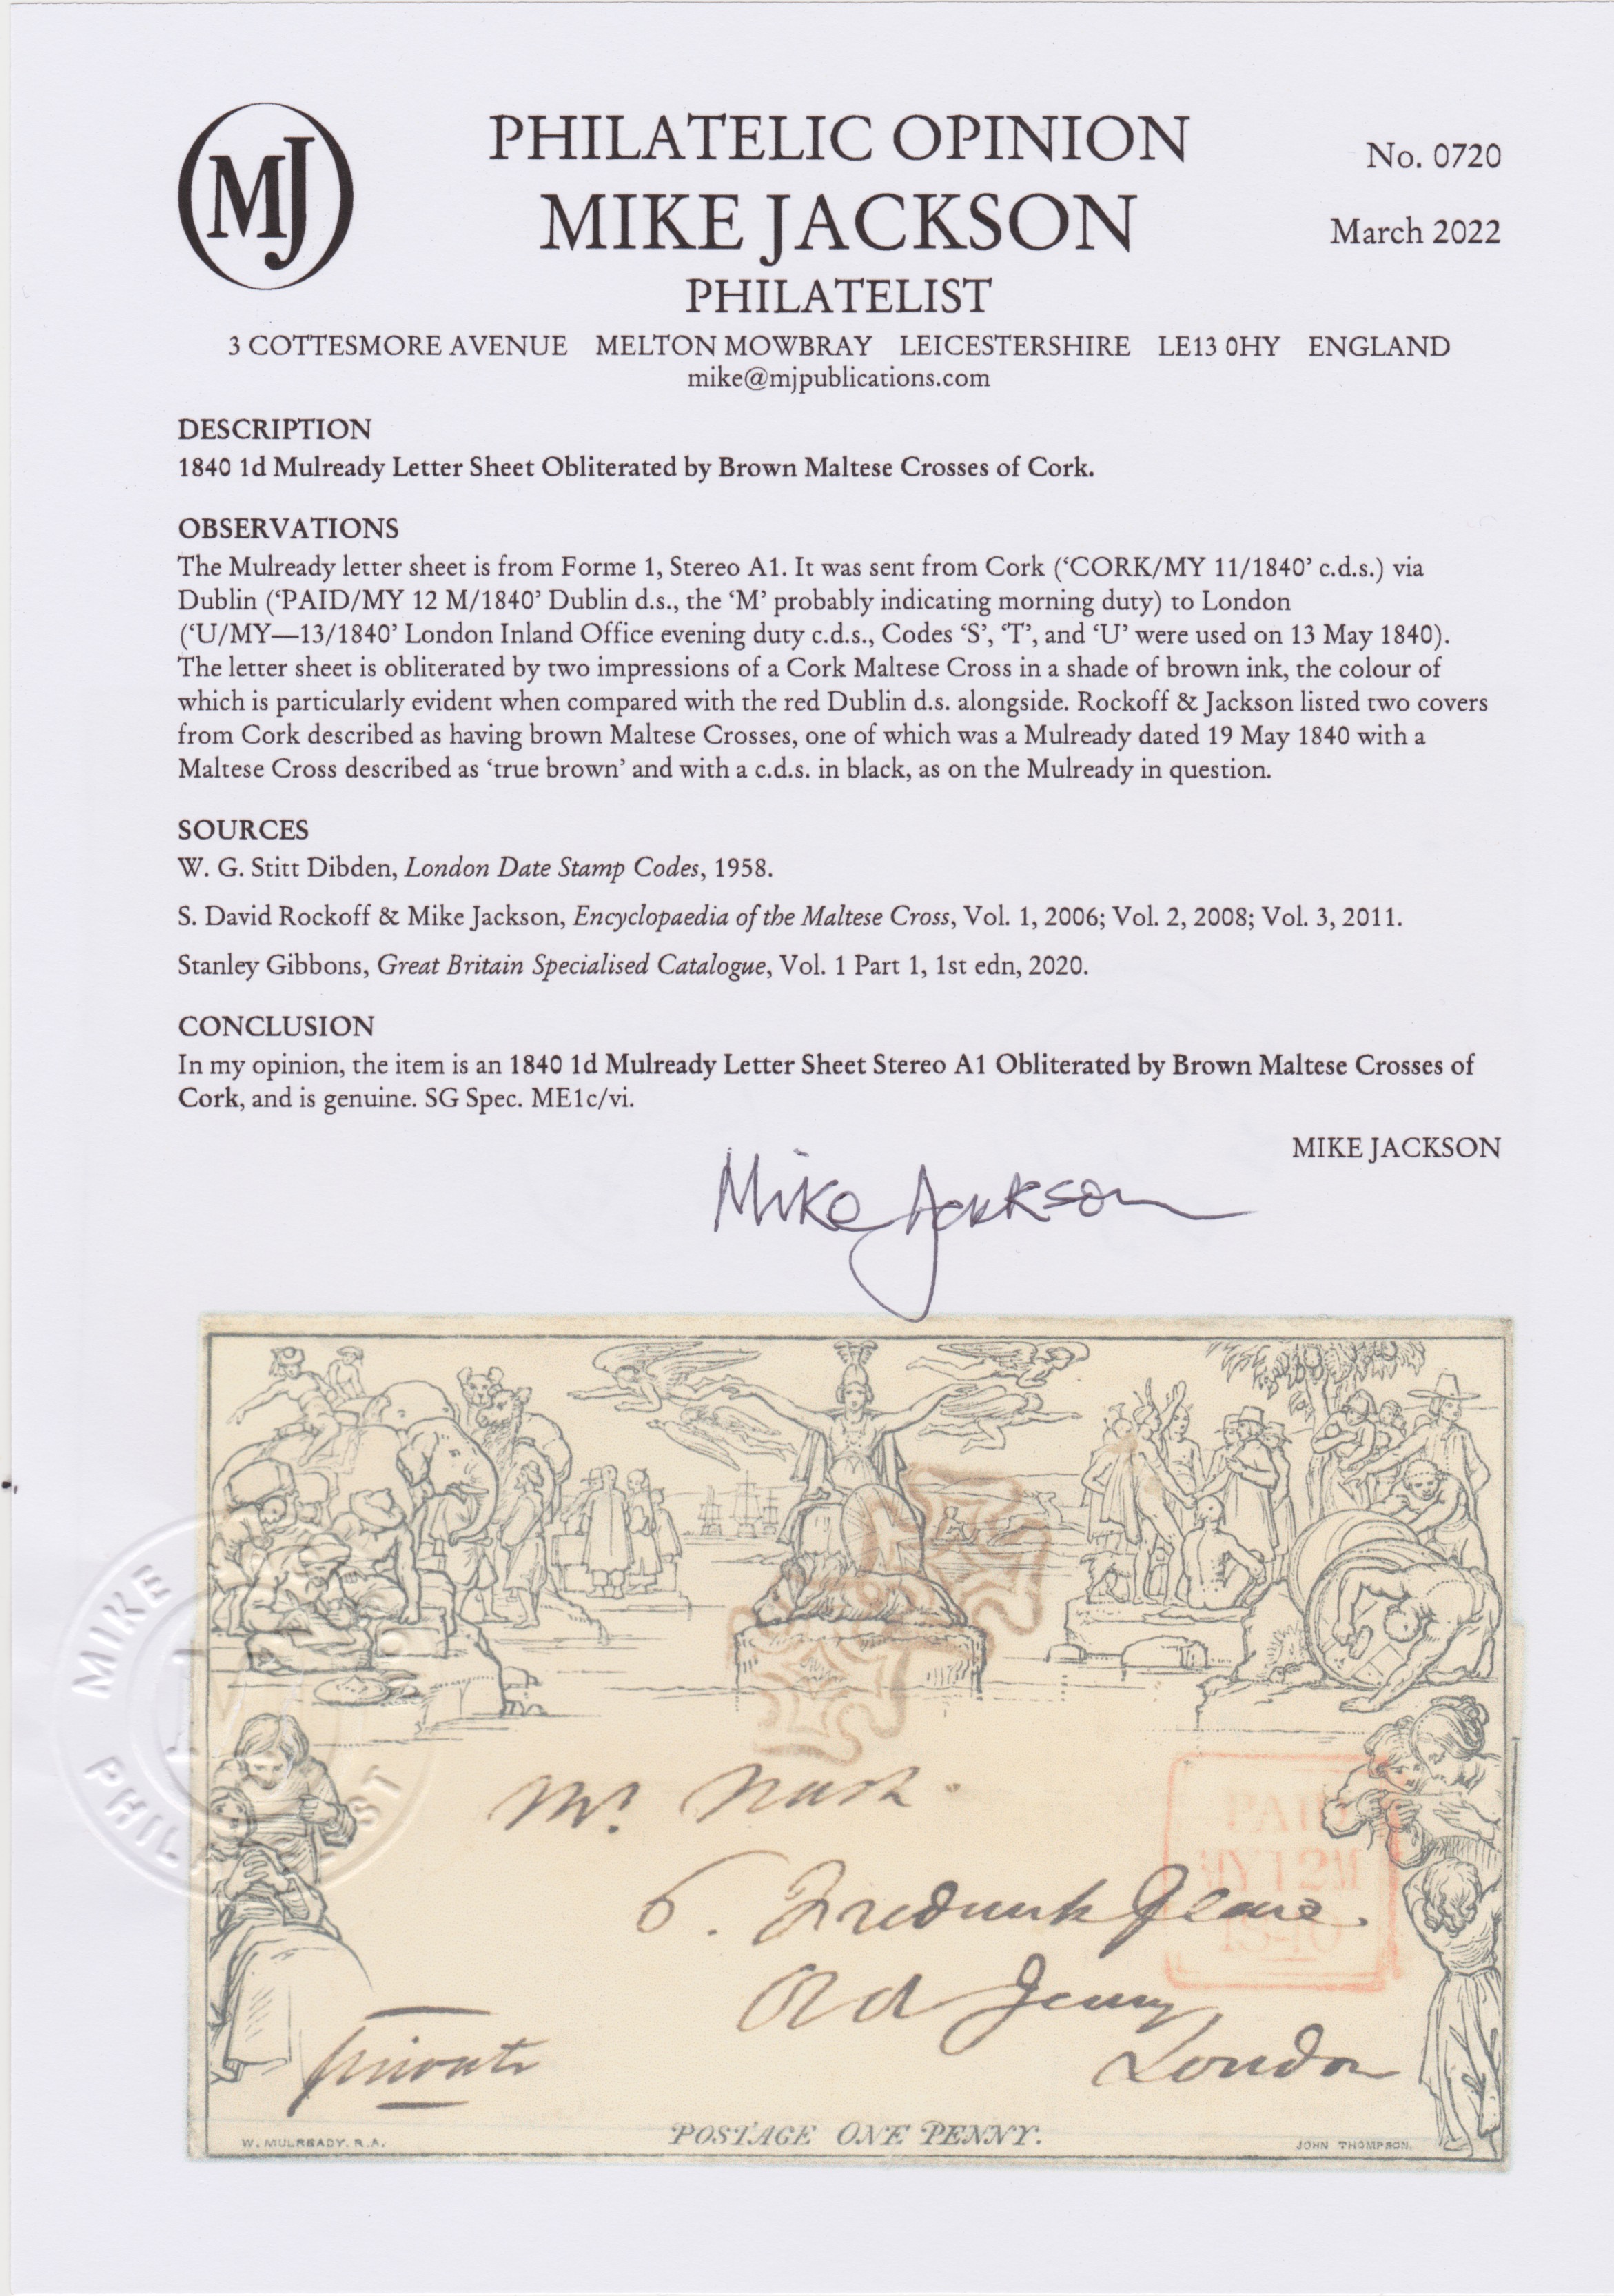 MJ
PHILATELIC OPINION
No. 0720
MIKE JACKSON
March 2022
PHILATELIST
3 COTTESMORE AVENUE MELTON MOWBRAY LEICESTERSHIRE LE13 0HY ENGLAND
mike@mjpublications.com
DESCRIPTION
1840 1d Mulready Letter Sheet Obliterated by Brown Maltese Crosses of Cork.
OBSERVATIONS
The Mulready letter sheet is from Forme 1, Stereo A1. It was sent from Cork (‘CORK/MY 11/1840’ c.d.s.) via
Dublin (‘PAID/MY 12 M/1840’ Dublin d.s., the ‘M’ probably indicating morning duty) to London
(‘U/MY—13/1840’ London Inland Office evening duty c.d.s., Codes ‘S’, ‘T’, and ‘U’ were used on 13 May 1840).
The letter sheet is obliterated by two impressions of a Cork Maltese Cross in a shade of brown ink, the colour of
which is particularly evident when compared with the red Dublin d.s. alongside. Rockoff & Jackson listed two covers
from Cork described as having brown Maltese Crosses, one of which was a Mulready dated 19 May 1840 with a
Maltese Cross described as ‘true brown’ and with a c.d.s. in black, as on the Mulready in question.
SOURCES
W. G. Stitt Dibden, London Date Stamp Codes, 1958.
S. David Rockoff & Mike Jackson, Encyclopaedia of the Maltese Cross, Vol. 1, 2006; Vol. 2, 2008; Vol. 3, 2011.
Stanley Gibbons, Great Britain Specialised Catalogue, Vol. 1 Part 1, 1st edn, 2020.
CONCLUSION
In my opinion, the item is an 1840 1d Mulready Letter Sheet Stereo A1 Obliterated by Brown Maltese Crosses of
Cork, and is genuine. SG Spec. ME1c/vi.
MIKE JACKSON
Mike Jackson
MIKE
PHIL
ST
Mr. Nash.
PAID
MY 12 M
1840
6. Frederick Place
Old Jewry
London
Private
POSTAGE ONE PENNY.
W. MULREADY. R.A.
JOHN THOMPSON.